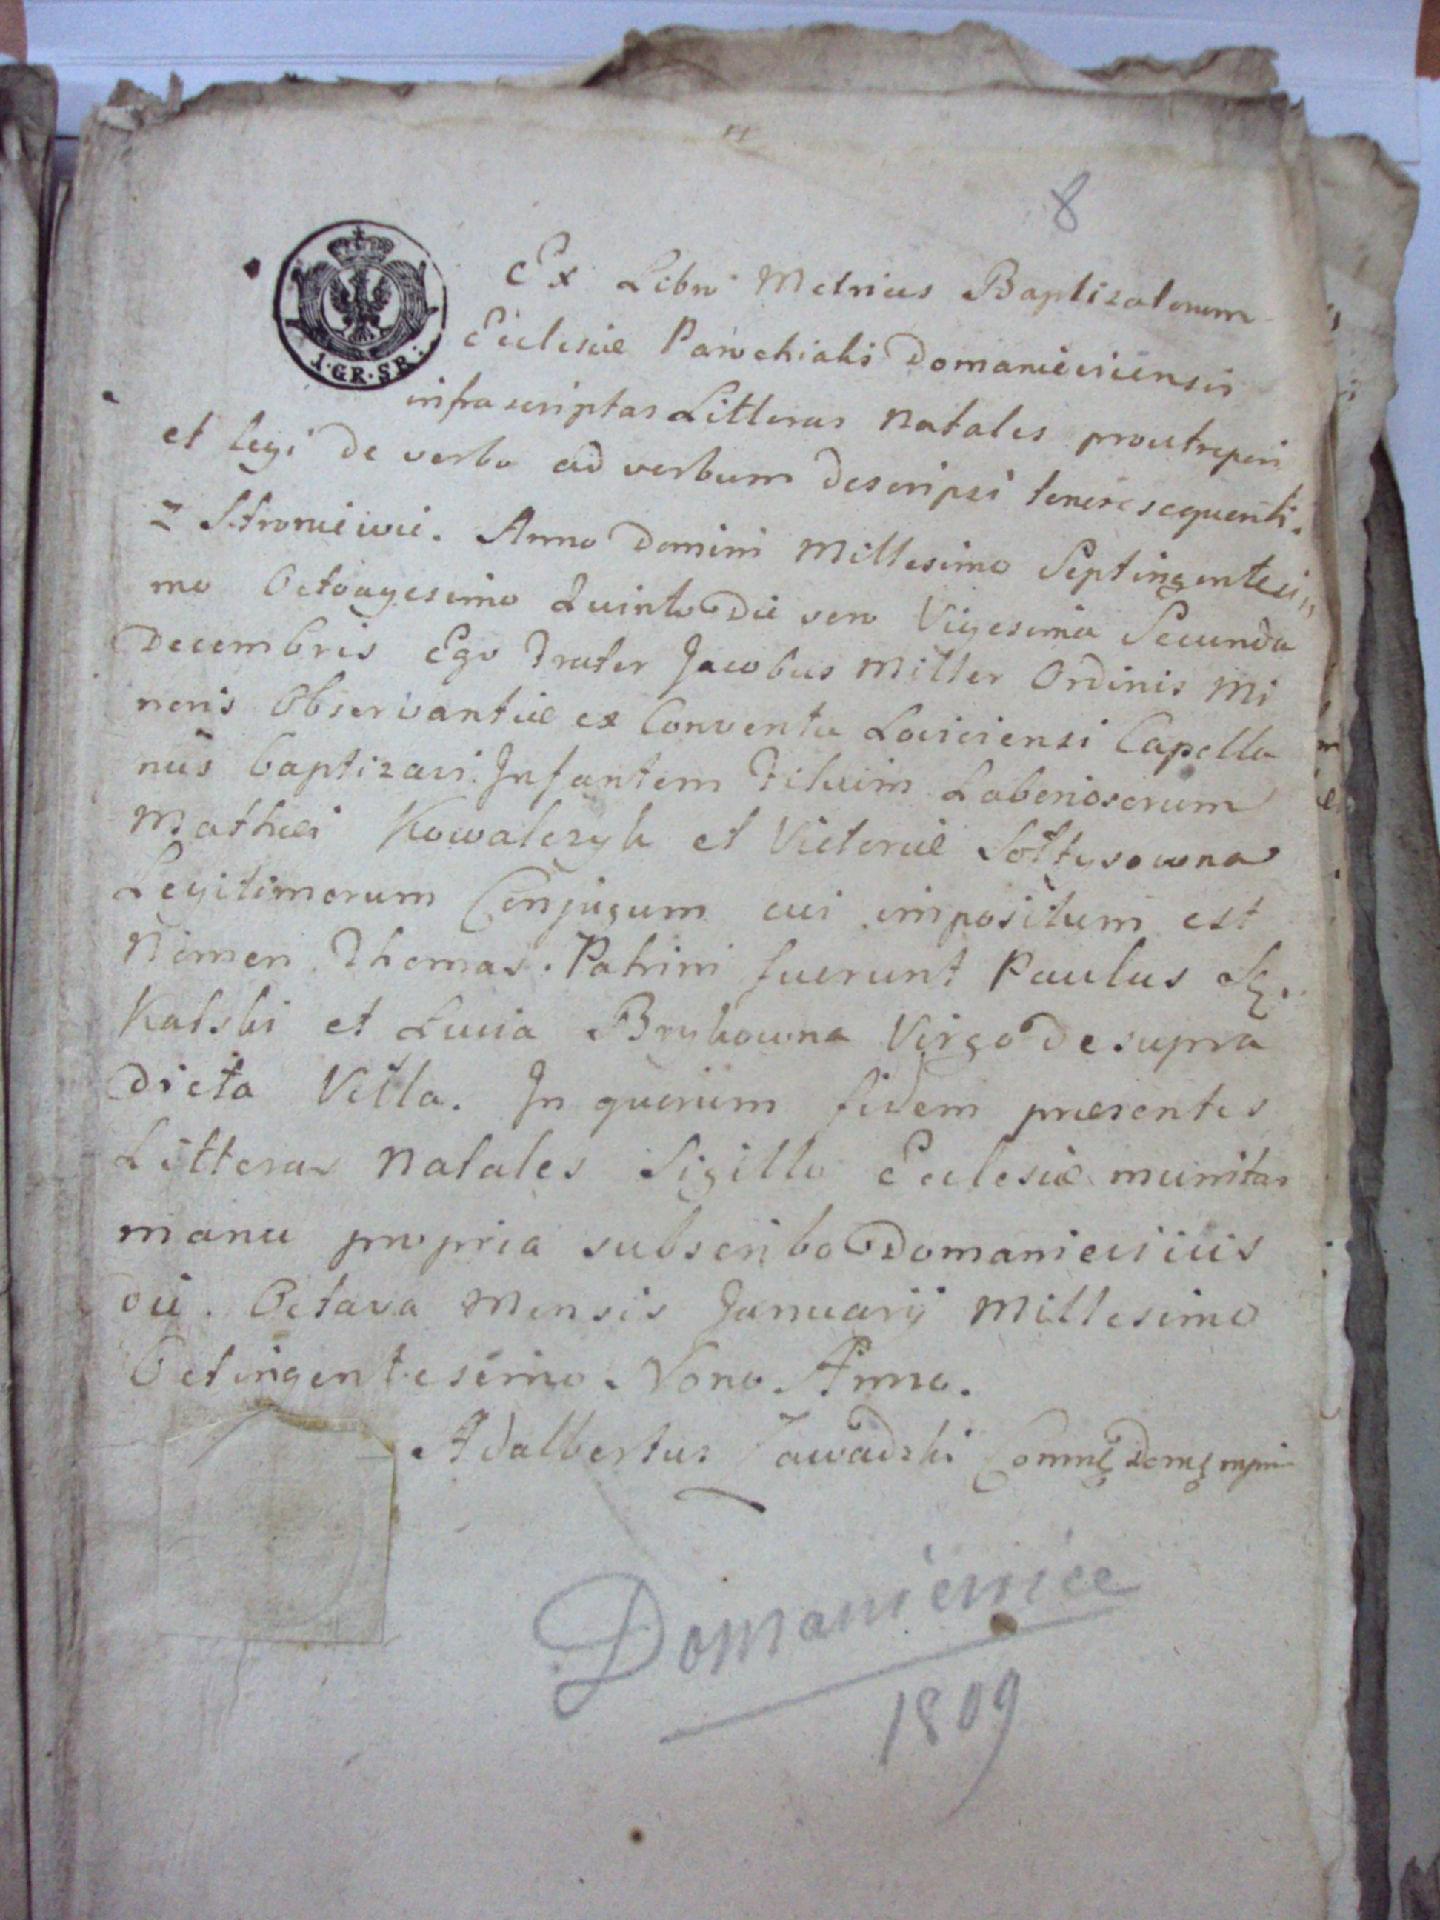 8
1.GR.SR:
Ex Libro Metrices Baptizatorum
Ecclesiæ Parochialis Domanieviciensis
infrascriptas Litteras Natales prout reperi
et legi de verbo ad verbum descripsi tenore sequenti.
z Stroniewic. Anno Domini Millesimo Septingentesi
mo Octoagesimo Quinto Die vero Vigesima Secunda
Decembris Ego Frater Jacobus Miller Ordinis Mi
noris Observantiæ ex Conventu Loviciensi Capella
nus baptizavi Infantem Filium Laboriosorum
Mathæi Kowalczyk et Victoriæ Sołtysowna
Legitimorum Conjugum cui impositum est
Nomen Thomas. Patrini fuerunt Paulus
Kalski et Lucia Brykowna Virgo de supra
dicta Villa. In quorum fidem præsentes
Litteras Natales Sigillo Ecclesiæ munitas
manu propria subscribo Domanieviciis
die. Octava Mensis Januarij Millesimo
Octingentesimo Nono Anno.
Adalbertus Zawadzki Comm Dom mpria
Domaniewice
1809